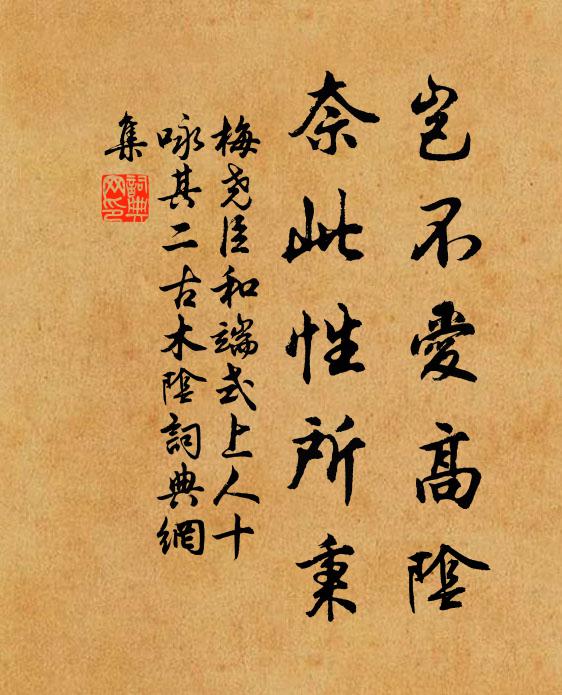 豈不愛高陰
奈此性所秉
梅堯臣和端式上人十
咏其二古木陰詞典網
集
詞典
网印